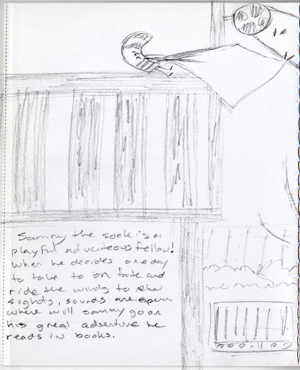 Sammy the sock is a
playful adventeous fellow!
When he decides one day
to take to on and
ride the winds to
sights, sounds are open
where will sammy go on
his great adventure he
reads in books.